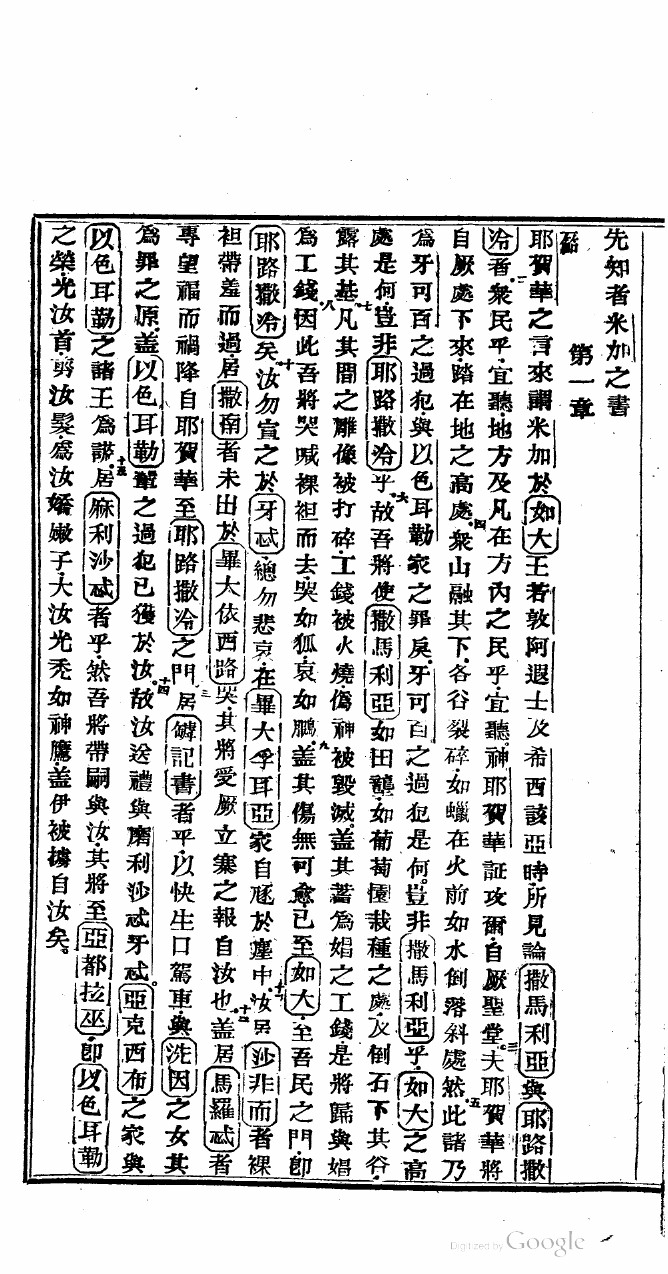 先知者米加之書
第一章
耶賀華之言來謂米加於如大王若敦阿遐士及希西該亞時所見論撒馬利亞與耶路撒
冷者二衆民乎宜聽地方及凡在方內之民乎宜聽神耶賀華証攻爾自厥聖堂三夫耶賀華將
自厥處下來踏在地之高處四衆山融其下各谷裂碎如蠟在火前如水倒落斜處然五此諸乃
爲牙可百之過犯與以色耳勒家之罪戾牙可百之過犯是何豈非撒馬利亞乎如大之高
處是何豈非耶路撒冷乎六故吾將使撒馬利亞如田壟如葡萄園栽種之處及倒石下其谷
露其基七凡其間之雕像被打碎工錢被火燒偽神被毀滅蓋其蓄爲娼之工錢是將歸與娼
爲工錢八因此吾將哭喊裸袒而去哭如狐哀如鵬九蓋其傷無可愈已至如大至吾民之門即
耶路撒冷矣十汝勿宣之於牙忒總勿悲哀在畢大孚耳亞家自豗於塵中十一汝居沙非而者裸
袒帶羞而過居撒南者未出於畢大依西路哭其將愛厥立寨之報自汝也十二蓋居馬羅忒者
專望福而禍降自耶賀華至耶路撒冷之門十三居罅記書者乎以快生口駕車與洗因之女其
爲罪之原蓋以色耳勒輩之過犯已獲於汝十四故汝送禮與磨利沙忒牙忒亞克西布之家與
以色耳勒之諸王爲謬十五居麻利沙忒者乎然吾將帶嗣與汝其將至亞都拉巫即以色耳勒
之榮光汝首剪汝髮爲汝嬌嫩子大汝光禿如神鷹蓋伊被擄自汝矣
Digitized by Google